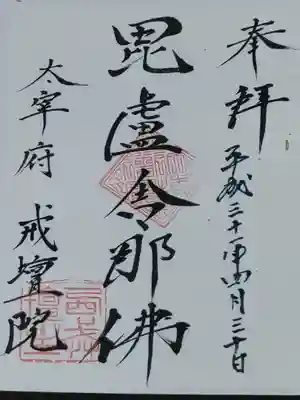 奉拝
平成三十一年四月三十日
毘盧舎那佛
太宰府 戒壇院